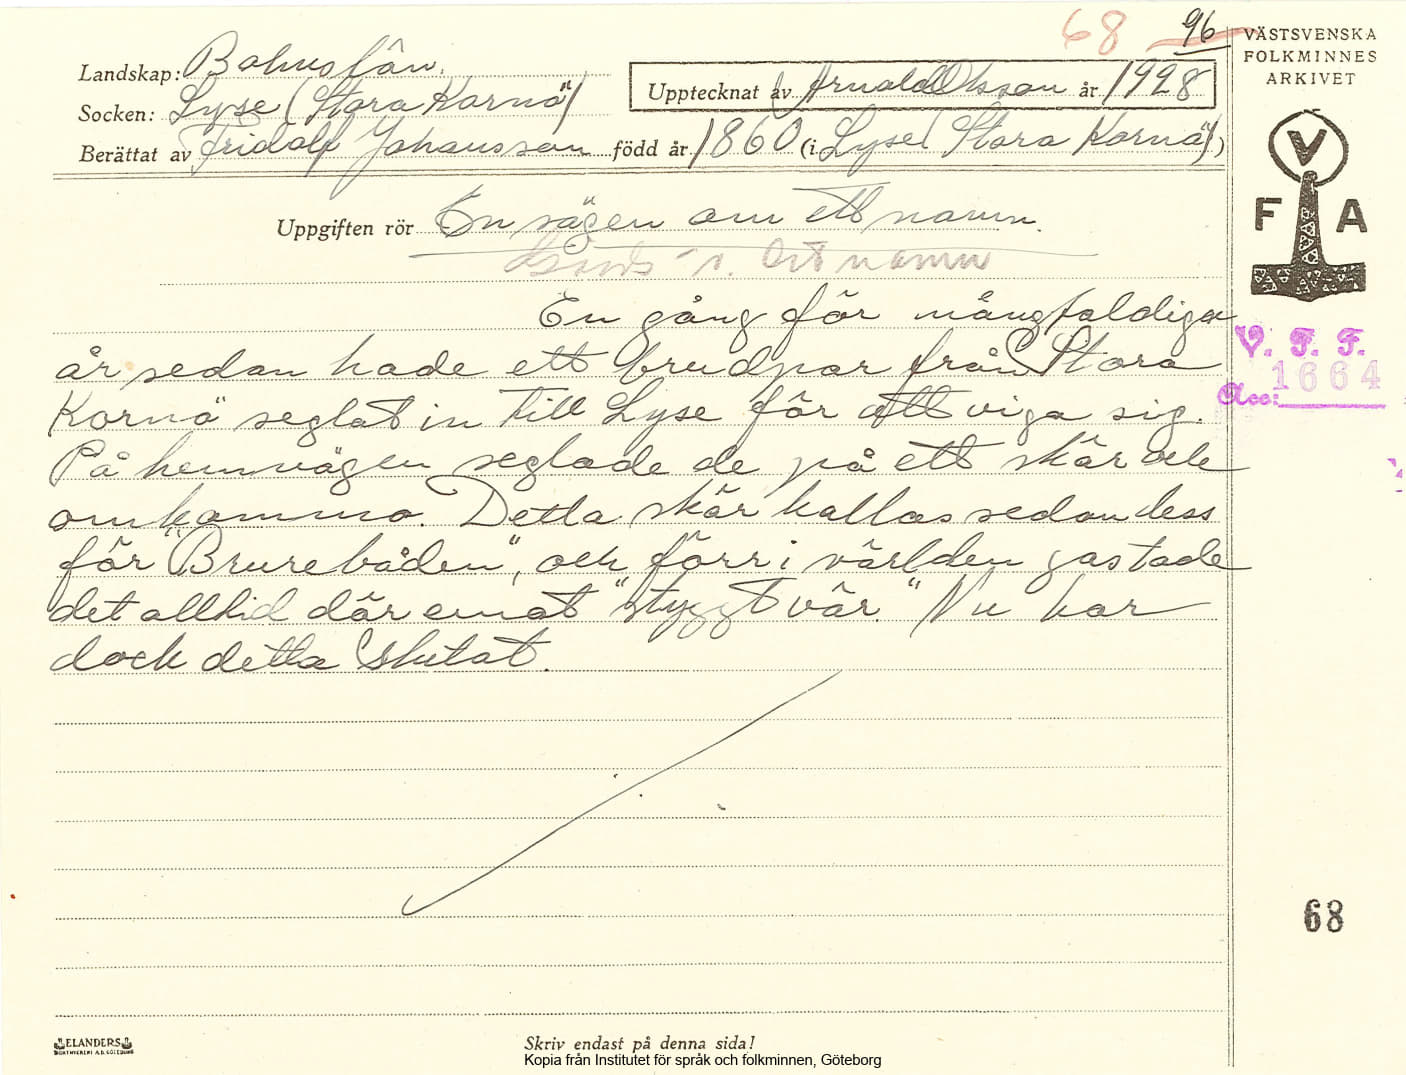 68 96
VÄSTSVENSKA
FOLKMINNES
ARKIVET
Landskap: Bohuslän.
Socken: Lyse (Stora Kornö)
Upptecknat av Arnold Olsson år 1928
Berättat av Fridolf Johansson född år 1860 (i Lyse (Stora Kornö))
V
F A
Uppgiften rör En sägen om ett namn.
Ortnamn
En gång för mångfaldiga
år sedan hade ett brudpar från Stora
Kornö seglat in till Lyse för att viga sig.
På hemvägen seglade de på ett skär och
omkommo. Detta skär kallas sedan dess
för "Brurebåden", och förr i världen gastade
det alltid där emot "styggt vär." Nu har
dock detta slutat.
V. F. F.
1664
Acc:
68
ELANDERS
BOKTRYCKERI A.B. GÖTEBORG
Skriv endast på denna sida!
Kopia från Institutet för språk och folkminnen, Göteborg